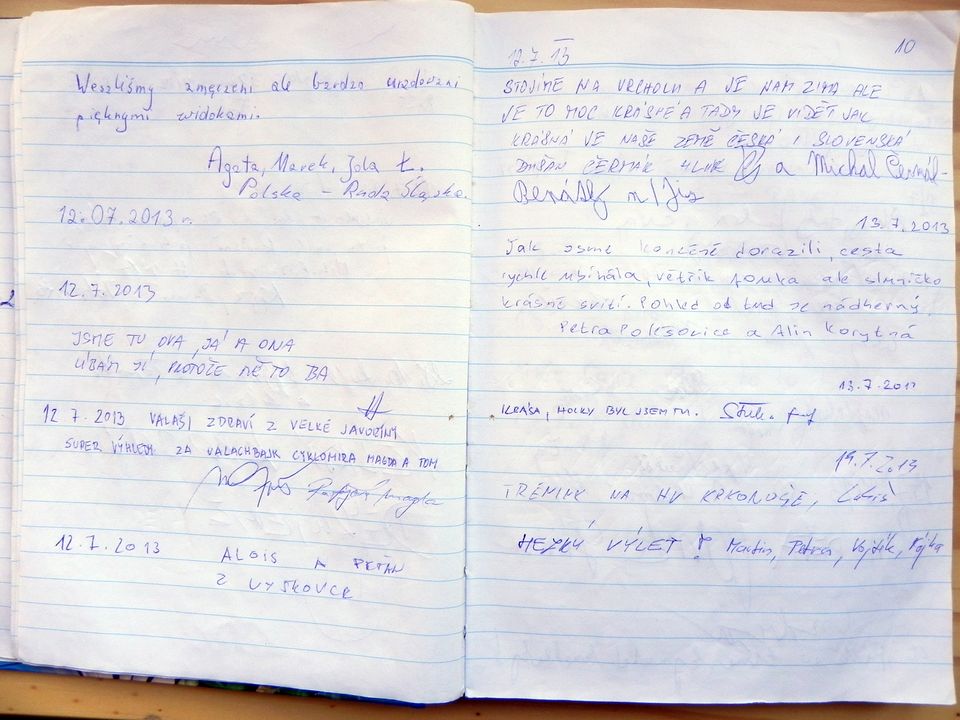 Weszliśmy zmęczeni ale bardzo uradowani
pięknymi widokami.
Agata, Marek, Jola Ł.
Polska - Ruda Śląska.
12.07.2013 r.
12.7.2013
JSME TU DVA, JÁ A ONA
LÍBÁM JÍ, PROTOŽE MĚ TO BA
12 7.2013 VALAŠI ZDRAVÍ Z VELKÉ JAVOŘINY
SUPER VÝHLEDY ZA VALACHBAJK CYKLOMIRA MAGDA A TOM
12.7.2013
ALOIS A PEŤAN
Z VYŠKOVCE
10
12.7.13
STOJÍME NA VRCHOLU A JE NÁM ZIMA ALE
JE TO MOC KRÁSNÉ A TADY JE VIDĚT JAK
KRÁSNÁ JE NAŠE ZEMĚ ČESKÁ I SLOVENSKÁ
DUŠAN ČERMÁK a Michal Čermák
13.7.2013
Jak jsme konečně dorazili, cesta
rychle ubíhala, větřík fouka ale sluníčko
krásně svítí. Pohled od tud je nádherný.
Petra Polešovice a Alin Korytná
13.7.2013
KRÁSA, HOLKY BYL JSEM TU.
14.7.2013
TRÉNINK NA HV KRKONOŠE,
HEZKÝ VÝLET! Martin, Petra, Vojtík,